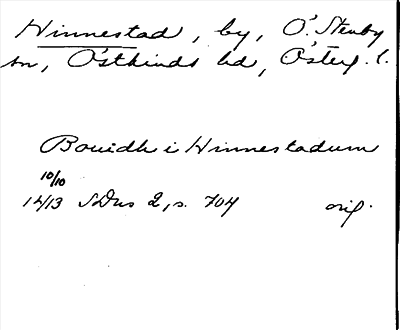 Hinnestad, by, Ö. Stenby
sn, Östkinds hd, Österg. l.
Bouidh i Hinnestadum
10/10
1413 SDns 2, s. 704 orig.